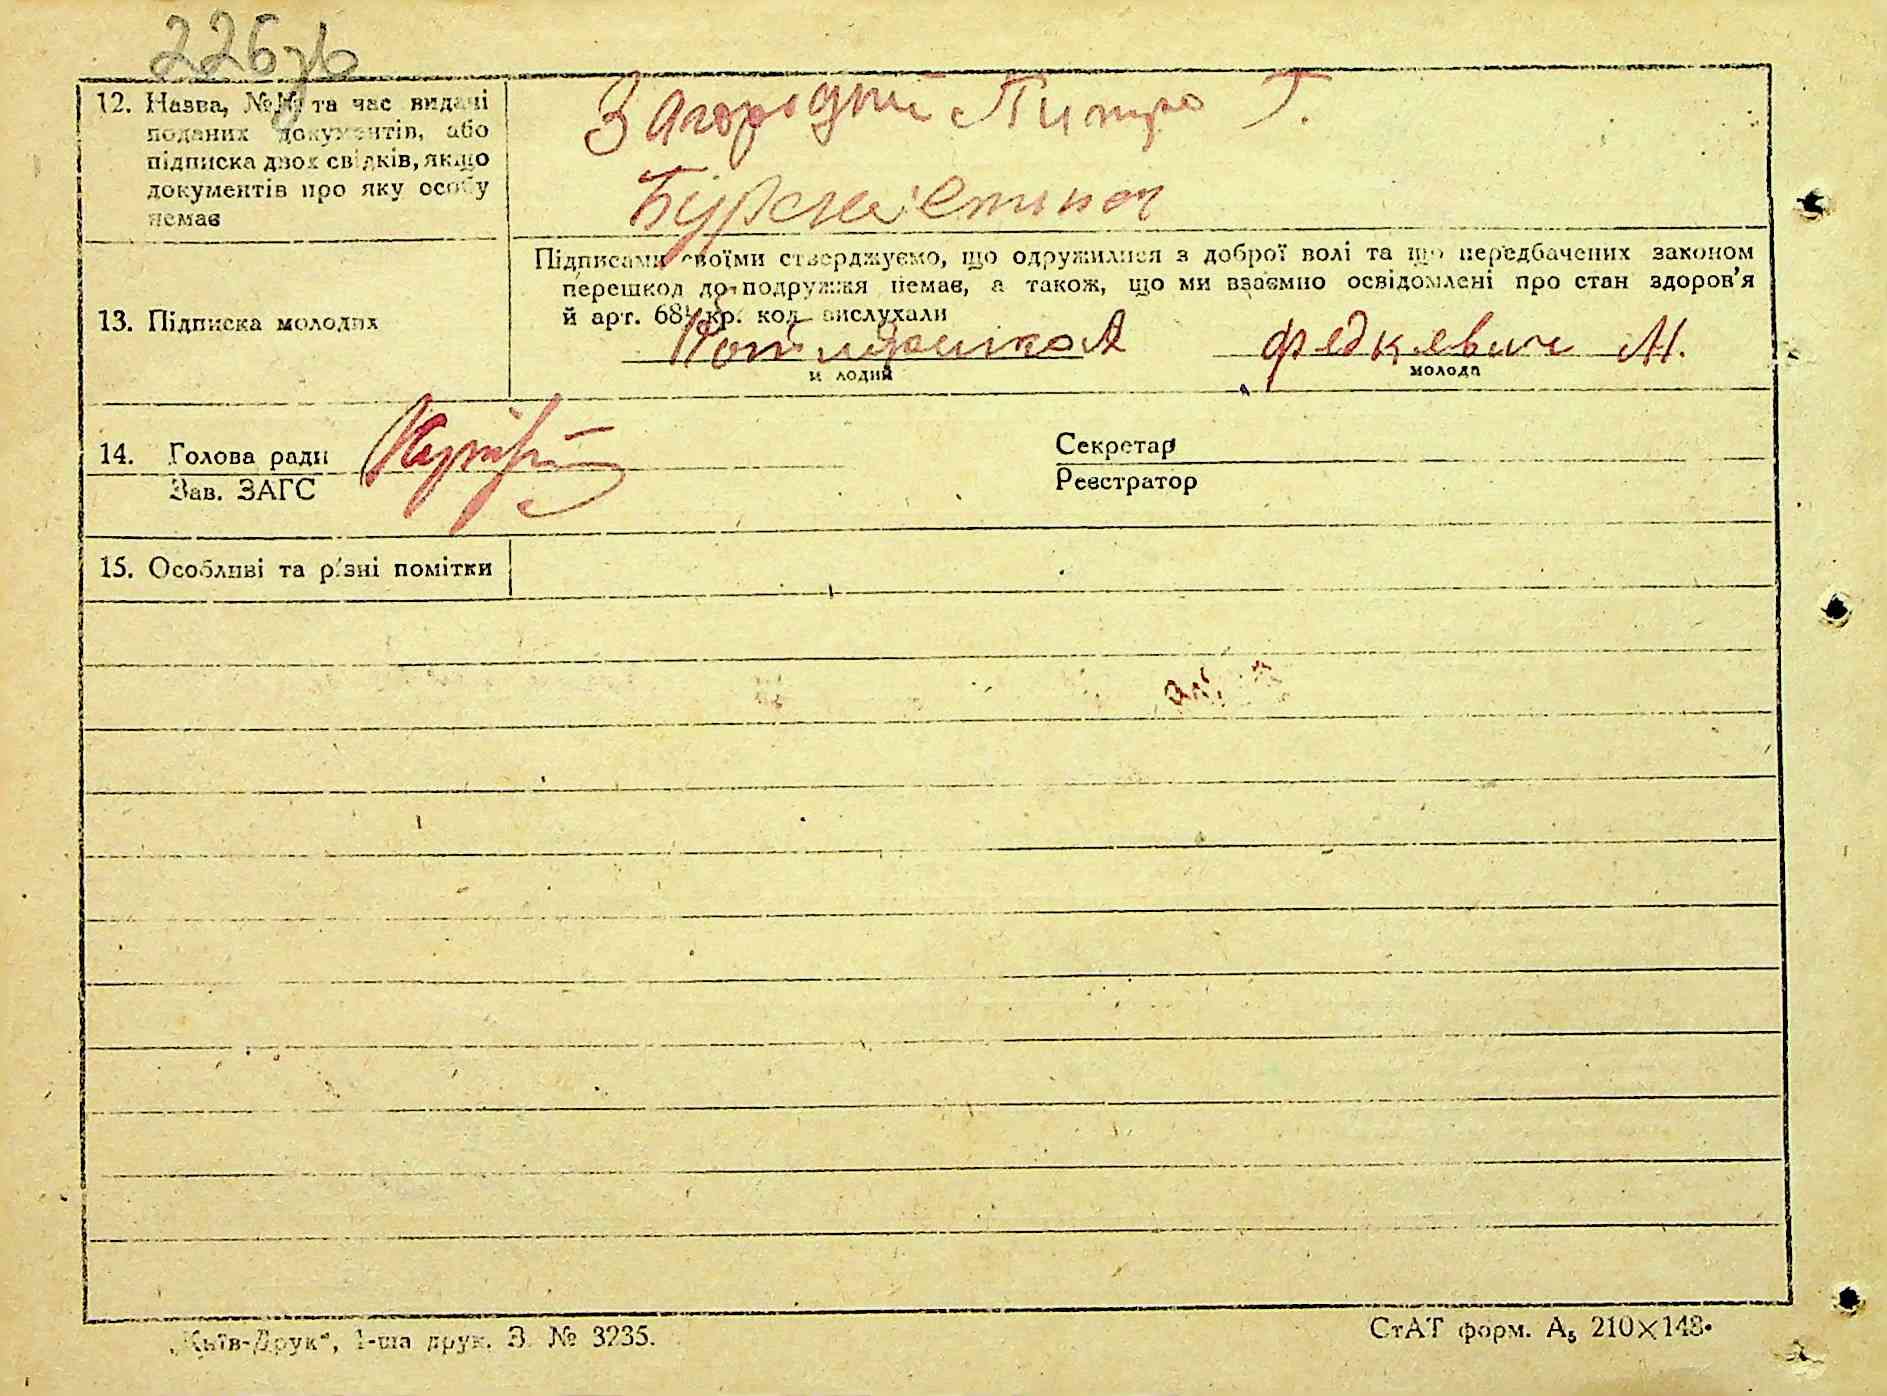 226зв
12. Назва, №№ та час видачі
поданих документів, або
підписка двох свідків, якщо
документів про яку особу
немає
Загородній Питро Г.
13. Підписка молодих
Підписами своїми стверджуємо, що одружилися з доброї волі та що передбачених законом
перешкод до подружжя немає, а також, що ми взаємно освідомлені про стан здоров'я
й арт. 68¹ кр. код. вислухали
А Федкевич М.
молодий молода
14. Голова ради
Зав. ЗАГС
Секретар
Реєстратор
15. Особливі та різні помітки
„Київ-Друк", 1-ша друк. З. № 3235.
СтАТ форм. А₅ 210×148.